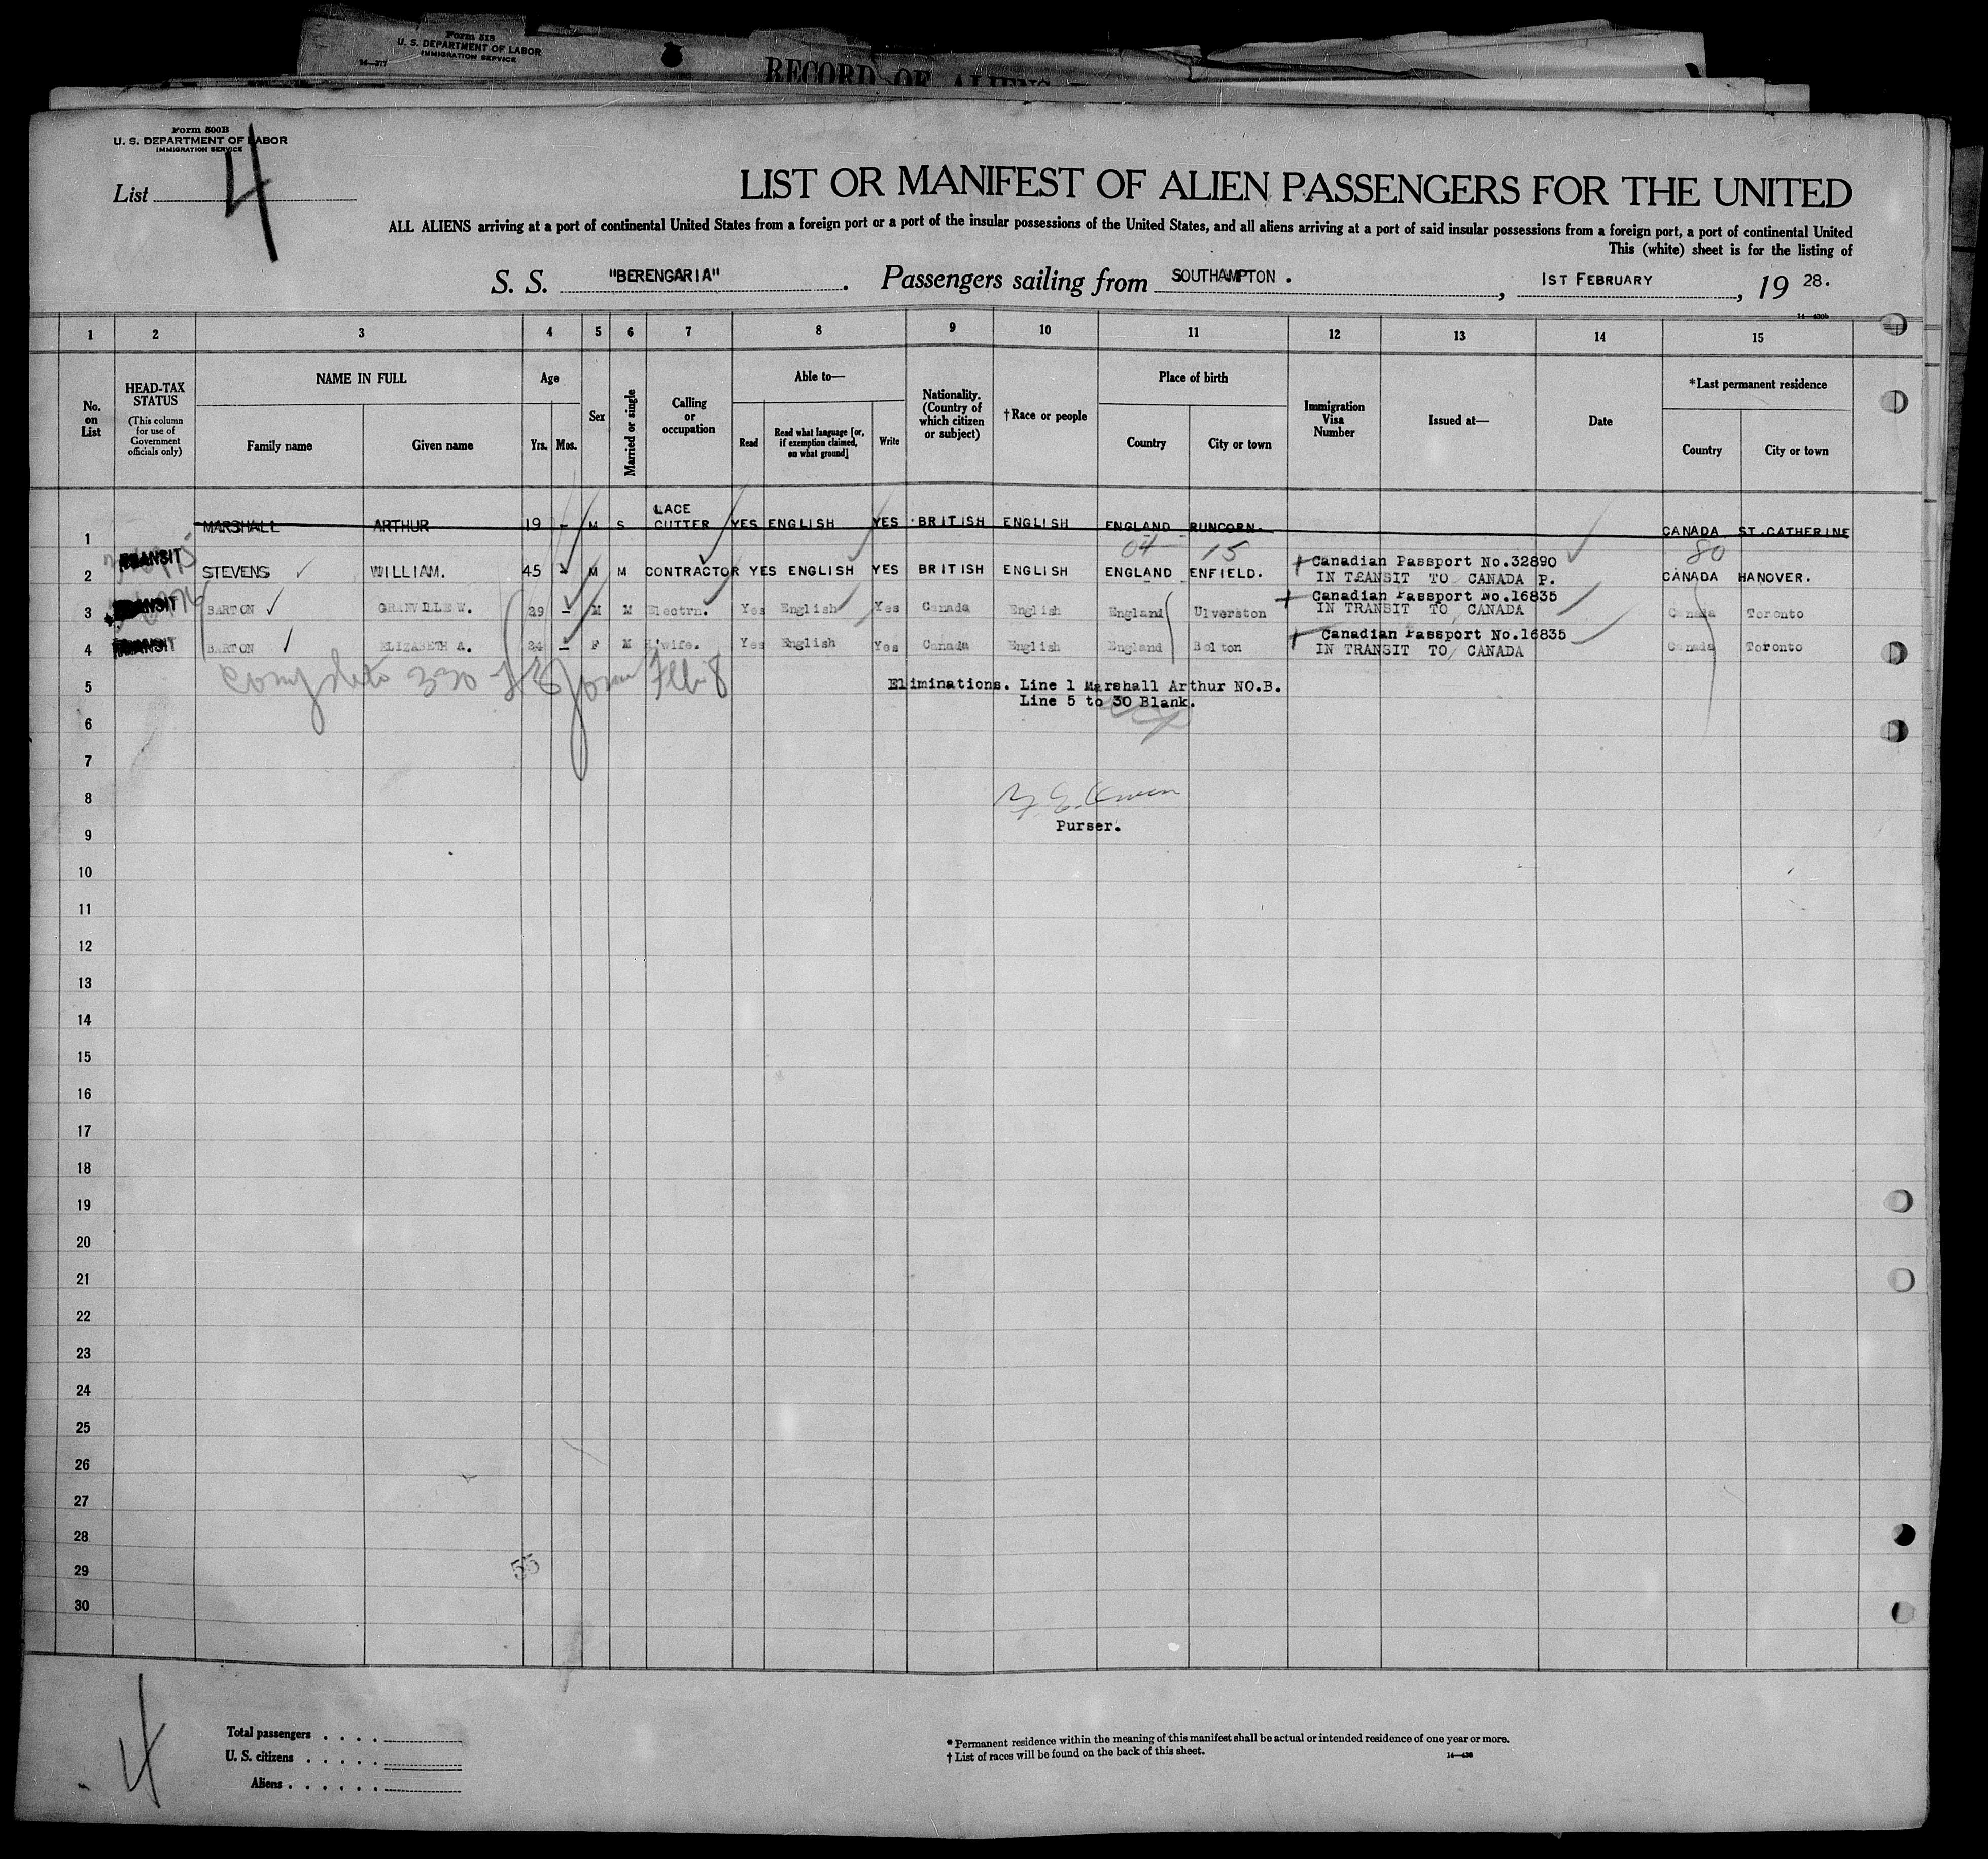 Form 515
U. S. DEPARTMENT OF LABOR
IMMIGRATION SERVICE
14—377
RECORD OF ALIENS
Form 500B
U. S. DEPARTMENT OF LABOR
IMMIGRATION SERVICE
List 4
LIST OR MANIFEST OF ALIEN PASSENGERS FOR THE UNITED
ALL ALIENS arriving at a port of continental United States from a foreign port or a port of the insular possessions of the United States, and all aliens arriving at a port of said insular possessions from a foreign port, a port of continental United
This (white) sheet is for the listing of
S. S. "BERENGARIA". Passengers sailing from SOUTHAMPTON., 1ST FEBRUARY, 19 28.
1 2 3 4 5 6 7 8 9 10 11 12 13 14 15
No. on List
HEAD-TAX STATUS
(This column for use of Government officials only)
NAME IN FULL
Family name Given name
Age
Yrs. Mos.
Sex
Married or single
Calling or occupation
Able to—
Read
Read what language [or, if exemption claimed, on what ground]
Write
Nationality. (Country of which citizen or subject)
†Race or people
Place of birth
Country City or town
Immigration Visa Number
Issued at—
Date
*Last permanent residence
Country City or town
1 MARSHALL ARTHUR 19 - M S LACE CUTTER YES ENGLISH YES BRITISH ENGLISH ENGLAND RUNCORN. CANADA ST.CATHERINE
04 15 80
2 TRANSIT STEVENS WILLIAM. 45 - M M CONTRACTOR YES ENGLISH YES BRITISH ENGLISH ENGLAND ENFIELD. Canadian Passport No.32890 IN TRANSIT TO CANADA P. CANADA HANOVER.
3 TRANSIT BARTON GRANVILLE W. 29 - M M Electrn. Yes English Yes Canada English England Ulverston Canadian Passport No.16835 IN TRANSIT TO CANADA Canada Toronto
4 TRANSIT BARTON ELIZABETH A. 24 - F M H'wife. Yes English Yes Canada English England Bolton Canadian Passport No.16835 IN TRANSIT TO CANADA Canada Toronto
5 Eliminations. Line 1 Marshall Arthur NO.B.
Line 5 to 30 Blank.
6
7
8
9 Purser.
10
11
12
13
14
15
16
17
18
19
20
21
22
23
24
25
26
27
28
29
55
30
4
Total passengers . . . .
U. S. citizens . . . . .
Aliens . . . . . .
* Permanent residence within the meaning of this manifest shall be actual or intended residence of one year or more.
† List of races will be found on the back of this sheet.